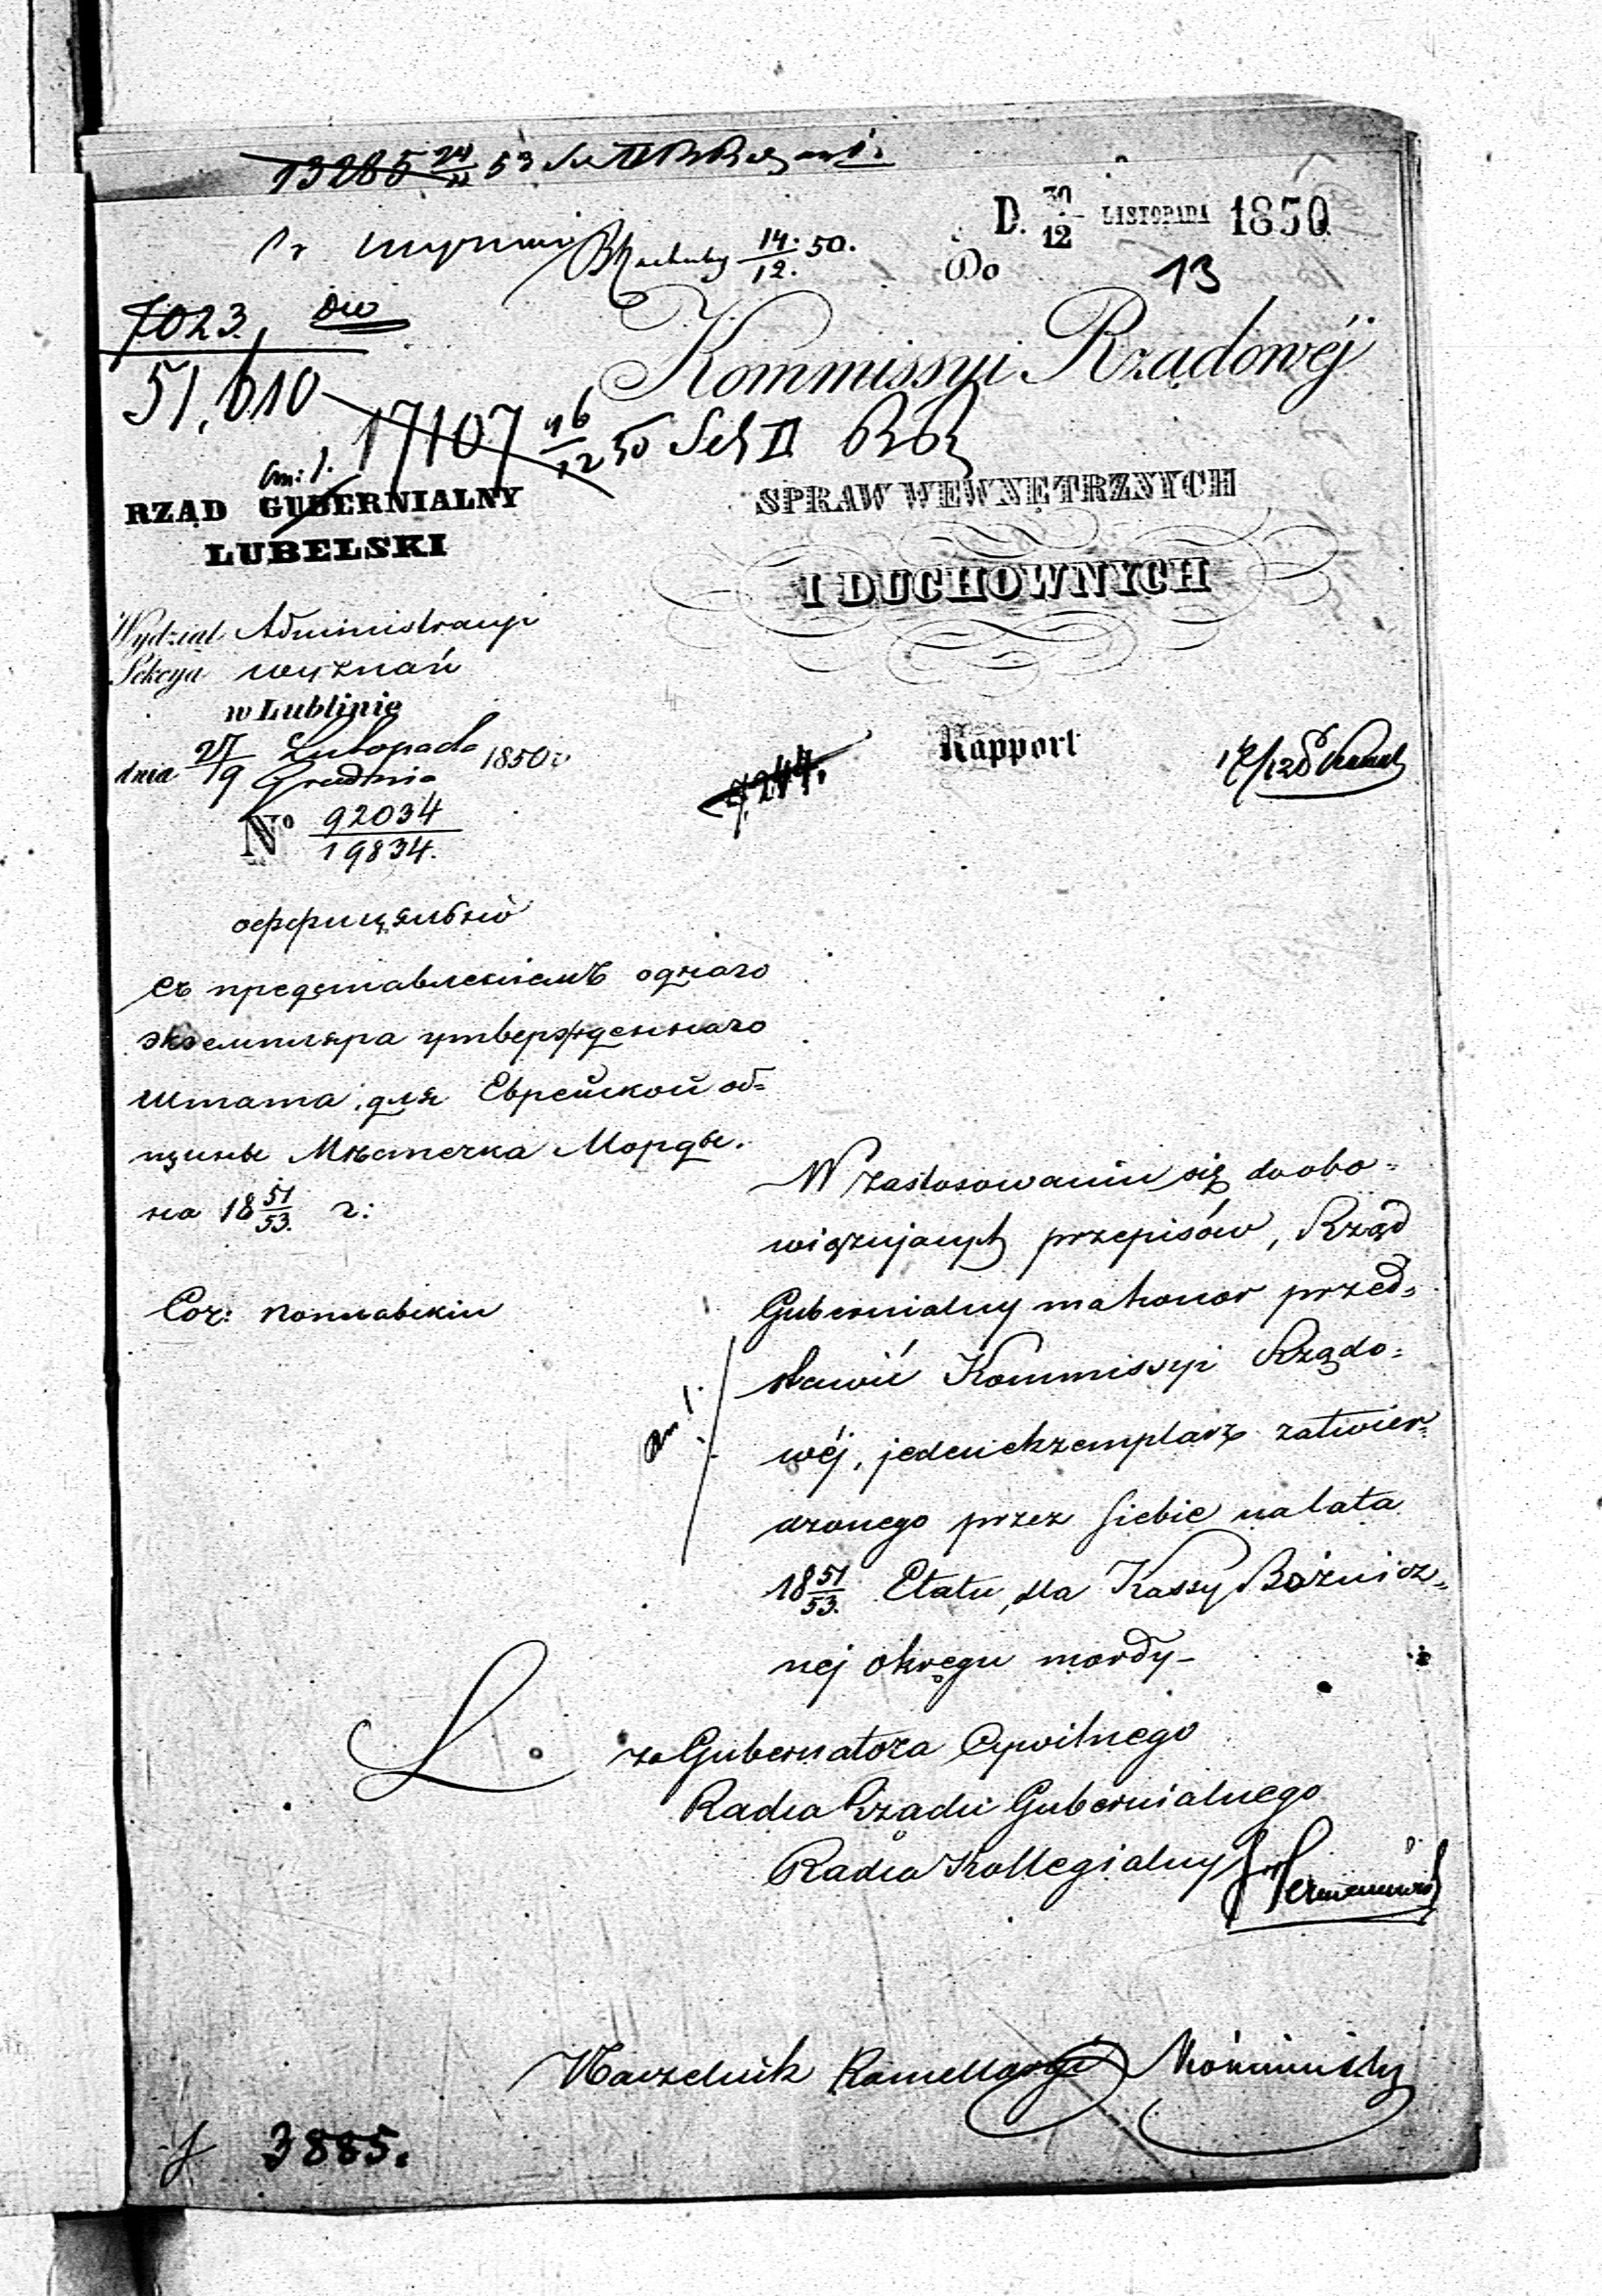 13285 24/11 53
D. 30/12 LISTOPADA 1850
14/12. 50.
Do
13
7023.
Kommissyi Rządowéj
51,610
17107 16/12 50 Sek II
RZĄD GUBERNIALNY
LUBELSKI
SPRAW WEWNĘTRZNYCH
I DUCHOWNYCH
Wydział Administracyi
Sekcya wyznań
w Lublinie
dnia 27/9 Listopada/Grudnia 1850 r
Rapport
7244.
No 92034/19834.
оффиціяльно
Съ представленіемъ однаго
экземпляра утвержденнаго
штата, для Еврейской об=
щины Мѣстечка Морды.
на 18 51/53. г:
W zastosowaniu się do obo=
wiązujących przepisów, Rząd
Gubernialny ma honor przed=
stawić Kommissyi Rządo=
wéj, jeden exzemplarz zatwier=
dzonego przez siebie na lata
18 51/53. Etatu, dla Kassy Bóżnicz=
nej okręgu mordy-
za Gubernatora Cywilnego
Radca Rządu Gubernialnego
Radca Kollegialny
Naczelnik Kancellaryi
3885.